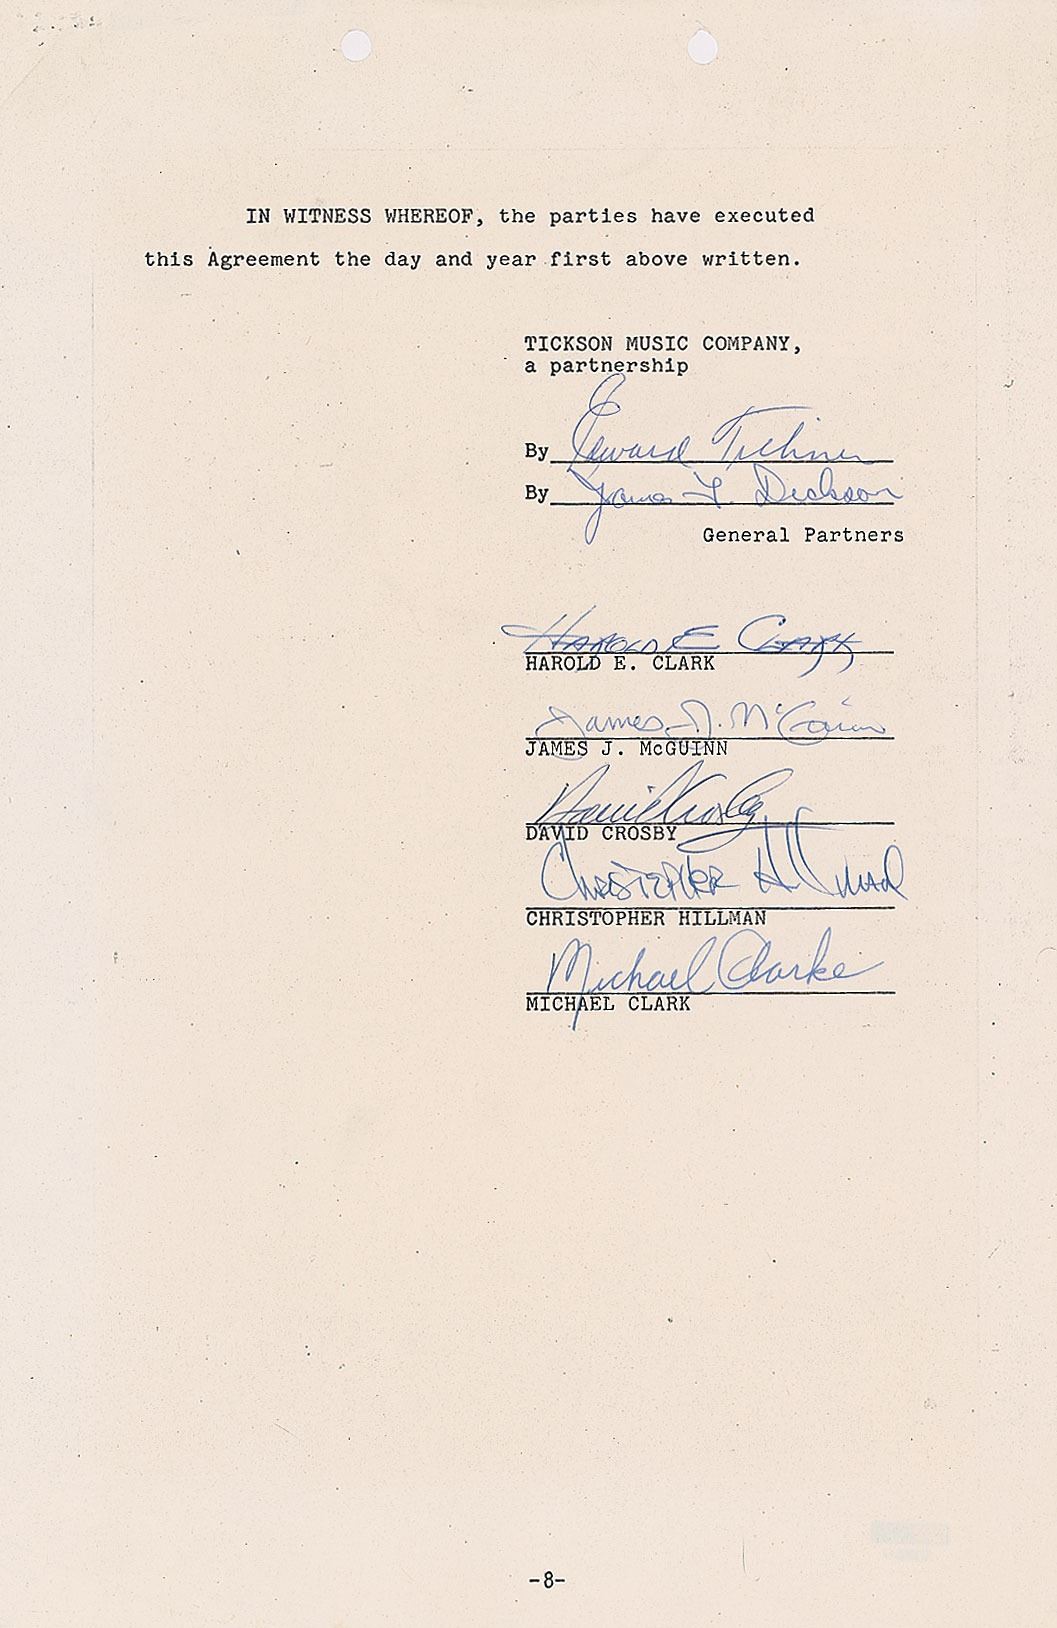 IN WITNESS WHEREOF, the parties have executed
this Agreement the day and year first above written.
TICKSON MUSIC COMPANY,
a partnership
By Edward Tickner
By James T. Dickson
General Partners
Harold E Clark
HAROLD E. CLARK
James J. McGuinn
JAMES J. McGUINN
David Crosby
DAVID CROSBY
CHRISTOPHER Hillman
CHRISTOPHER HILLMAN
Michael Clarke
MICHAEL CLARK
-8-